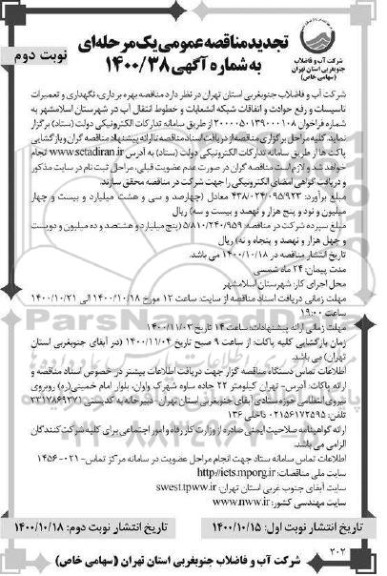 شرکت آب و فاضلاب
جنوبغربی استان تهران
(سهامی خاص)
تجدید مناقصه عمومی یک مرحله‌ای
به شماره آگهی ۱۴۰۰/۳۸
نوبت دوم
شرکت آب و فاضلاب جنوبغربی استان تهران در نظر دارد مناقصه بهره برداری، نگهداری و تعمیرات
تاسیسات و رفع حوادث و اتفاقات شبکه انشعابات و خطوط انتقال آب در شهرستان اسلامشهر به
شماره فراخوان ۲۰۰۰۰۵۰۱۳۹۰۰۰۱۰۸ از طریق سامانه تدارکات الکترونیکی دولت (ستاد) برگزار
نماید. کلیه مراحل برگزاری مناقصه از دریافت اسناد مناقصه تا ارائه پیشنهاد مناقصه گران و بازگشایی
پاکت ها از طریق سامانه تدارکات الکترونیکی دولت (ستاد) به آدرس www.setadiran.ir انجام
خواهد شد و لازم است مناقصه گران در صورت عدم عضویت قبلی، مراحل ثبت نام در سایت مذکور
و دریافت گواهی امضای الکترونیکی را جهت شرکت در مناقصه محقق سازند.
مبلغ برآورد: ۴۳۸/۰۲۴/۰۹۵/۹۲۳ معادل (چهارصد و سی و هشت میلیارد و بیست و چهار
میلیون و نود و پنج هزار و نهصد و بیست و سه) ریال
مبلغ سپرده شرکت در مناقصه: ۵/۸۱۰/۲۴۰/۹۵۹ (پنج میلیارد و هشتصد و ده میلیون و دویست
و چهل هزار و نهصد و پنجاه و نه) ریال
تاریخ انتشار مناقصه در ۱۴۰۰/۱۰/۱۸ می باشد.
مدت پیمان: ۲۴ ماه شمسی
محل اجرای کار: شهرستان اسلامشهر
مهلت زمانی دریافت اسناد مناقصه از سایت: ساعت ۱۲ مورخ ۱۴۰۰/۱۰/۱۸ الی ۱۴۰۰/۱۰/۲۱
ساعت ۱۹:۰۰
مهلت زمانی ارائه پیشنهادات: ساعت ۱۴ تاریخ ۱۴۰۰/۱۱/۰۳
زمان بازگشایی کلیه پاکات: از ساعت ۹ صبح تاریخ ۱۴۰۰/۱۱/۰۴ (در آبفای جنوبغربی استان
تهران) می باشد
اطلاعات تماس دستگاه مناقصه گزار جهت دریافت اطلاعات بیشتر در خصوص اسناد مناقصه و
ارائه پاکات: آدرس- تهران کیلومتر ۲۲ جاده ساوه شهرک واوان، بلوار امام خمینی(ره) روبروی
نیروی انتظامی حوزه ستادی آبفای جنوبغربی استان تهران- دبیرخانه به کدپستی ۳۳۱۷۸۶۹۳۷۱
تلفن: ۰۲۱۵۶۱۷۲۵۹۵ داخلی ۱۳۶
ارائه گواهینامه صلاحیت ایمنی صادره از وزارت کار رفاه و امور اجتماعی برای کلیه شرکت کنندگان
الزامی می باشد.
اطلاعات تماس سامانه ستاد جهت انجام مراحل عضویت در سامانه مرکز تماس- ۰۲۱-۱۴۵۶
سایت ملی مناقصات: http://iets.mporg.ir
سایت آبفای جنوب غربی استان تهران: swest.tpww.ir
سایت مهندسی کشور: www.nww.ir
تاریخ انتشار نوبت اول: ۱۴۰۰/۱۰/۱۵
تاریخ انتشار نوبت دوم: ۱۴۰۰/۱۰/۱۸
۲۰۲
شرکت آب و فاضلاب جنوبغربی استان تهران (سهامی خاص)
ParsNamadData